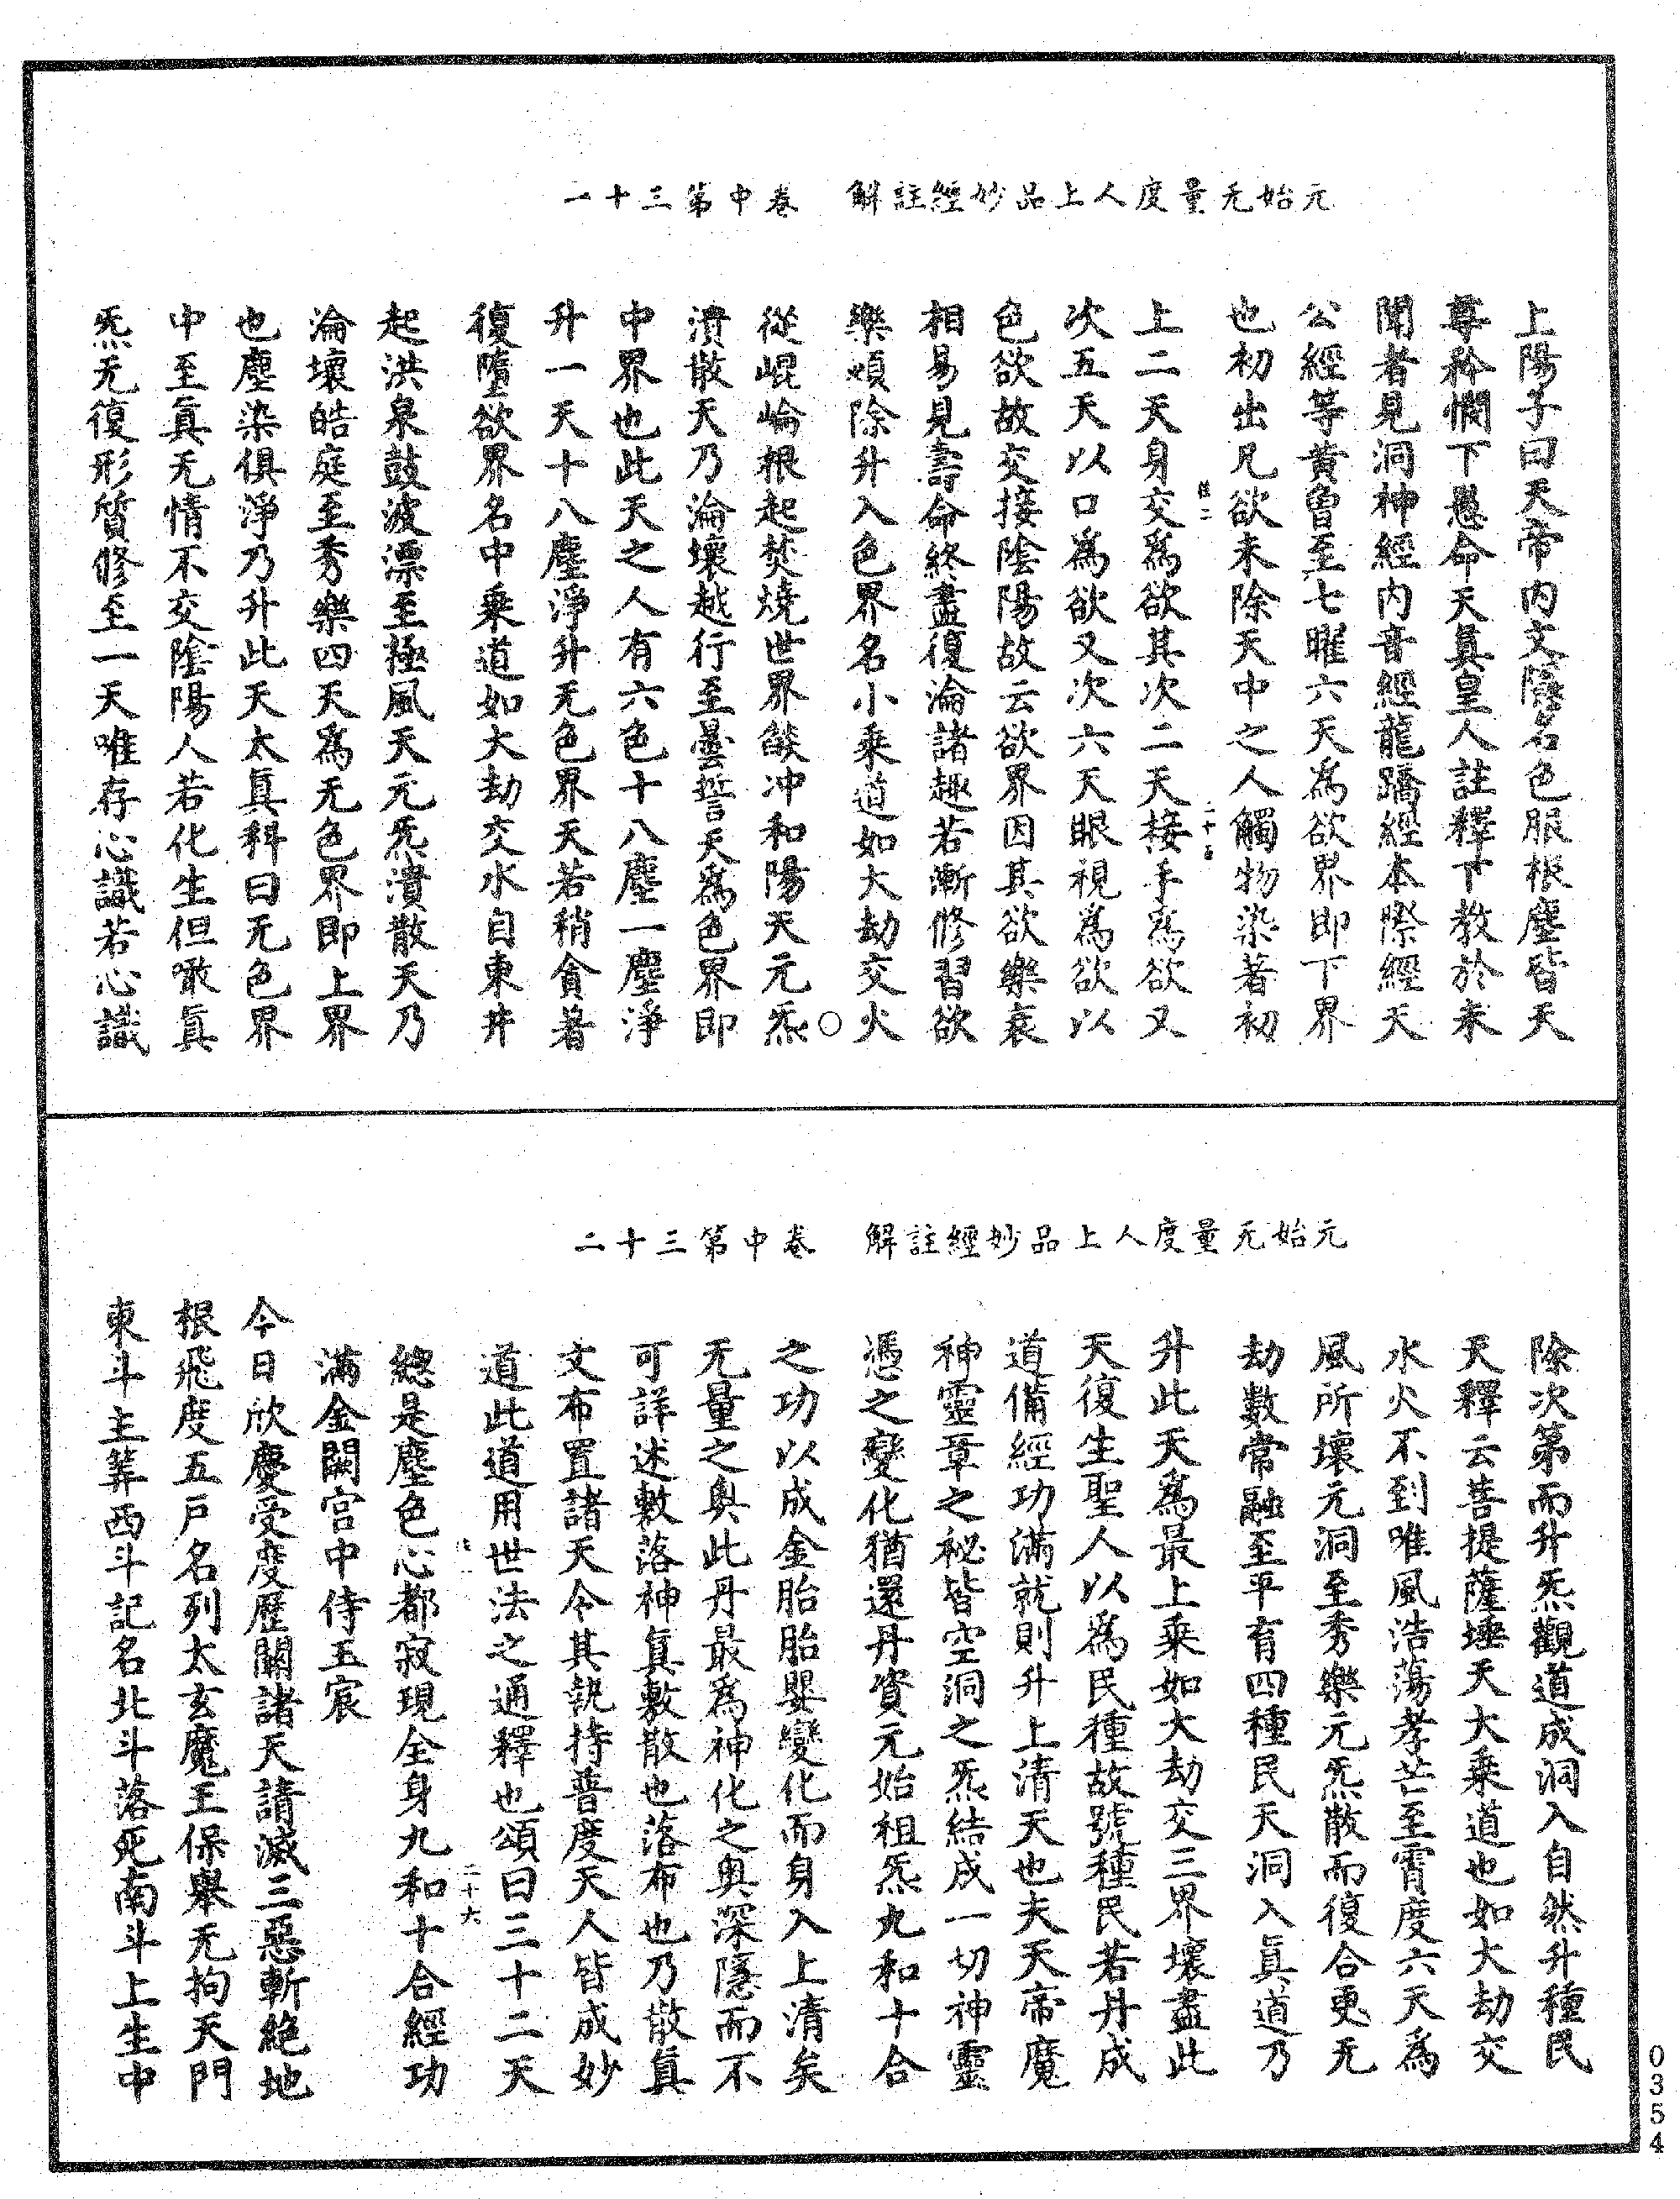 元始无量度人上品妙經註解　卷中第三十一
上陽子曰天帝內文隱名色服根塵皆天
尊矜憫下愚命天眞皇人註釋下教於未
聞者見洞神經內音經龍蹻經本際經天
公經等黃曾至七曜六天爲欲界即下界
也初出凡欲未除天中之人觸物染著初
二十五
上二天身交爲欲其次二天接手爲欲又
次五天以口爲欲又次六天眼視爲欲以
色欲故交接陰陽故云欲界因其欲樂衰
相易見壽命終盡復淪諸趣若漸修習欲
樂頓除升入色界名小乘道如大劫交火
○
從崐崘根起焚燒世界餤冲和陽天元炁
潰散天乃淪壞越行至曇誓天爲色界即
中界也此天之人有六色十八塵一塵淨
升一天十八塵淨升无色界天若稍貪著
復墮欲界名中乘道如大劫交水自東井
起洪泉鼓波漂至極風天元炁潰散天乃
淪壞皓庭至秀樂四天爲无色界即上界
也塵染俱淨乃升此天太眞科曰无色界
中至眞无情不交陰陽人若化生但噉眞
炁无復形質修至一天唯存心識若心識
元始无量度人上品妙經註解　卷中第三十二
除次第而升炁觀道成洞入自然升種民
天釋云菩提薩埵天大乘道也如大劫交
水火不到唯風浩蕩孝芒至霄度六天爲
風所壞元洞至秀樂元炁散而復合更无
劫數常融至平有四種民天洞入眞道乃
升此天爲最上乘如大劫交三界壞盡此
天復生聖人以爲民種故號種民若丹成
道備經功滿就則升上清天也夫天帝魔
神靈章之祕皆空洞之炁結成一切神靈
憑之變化猶還丹資元始祖炁九和十合
之功以成金胎胎嬰變化而身入上清矣
无量之奥此丹最爲神化之奥深隱而不
可詳述敷落神眞敷散也落布也乃散眞
文布置諸天令其執持普度天人皆成妙
道此道用世法之通釋也頌曰三十二天
二十六
總是塵色心都寂現全身九和十合經功
滿金闕宫中侍玉宸
今日欣慶受度歷關諸天請滅三惡斬絕地
根飛度五戶名列太玄魔王保舉无拘天門
東斗主筭西斗記名北斗落死南斗上生中
0354